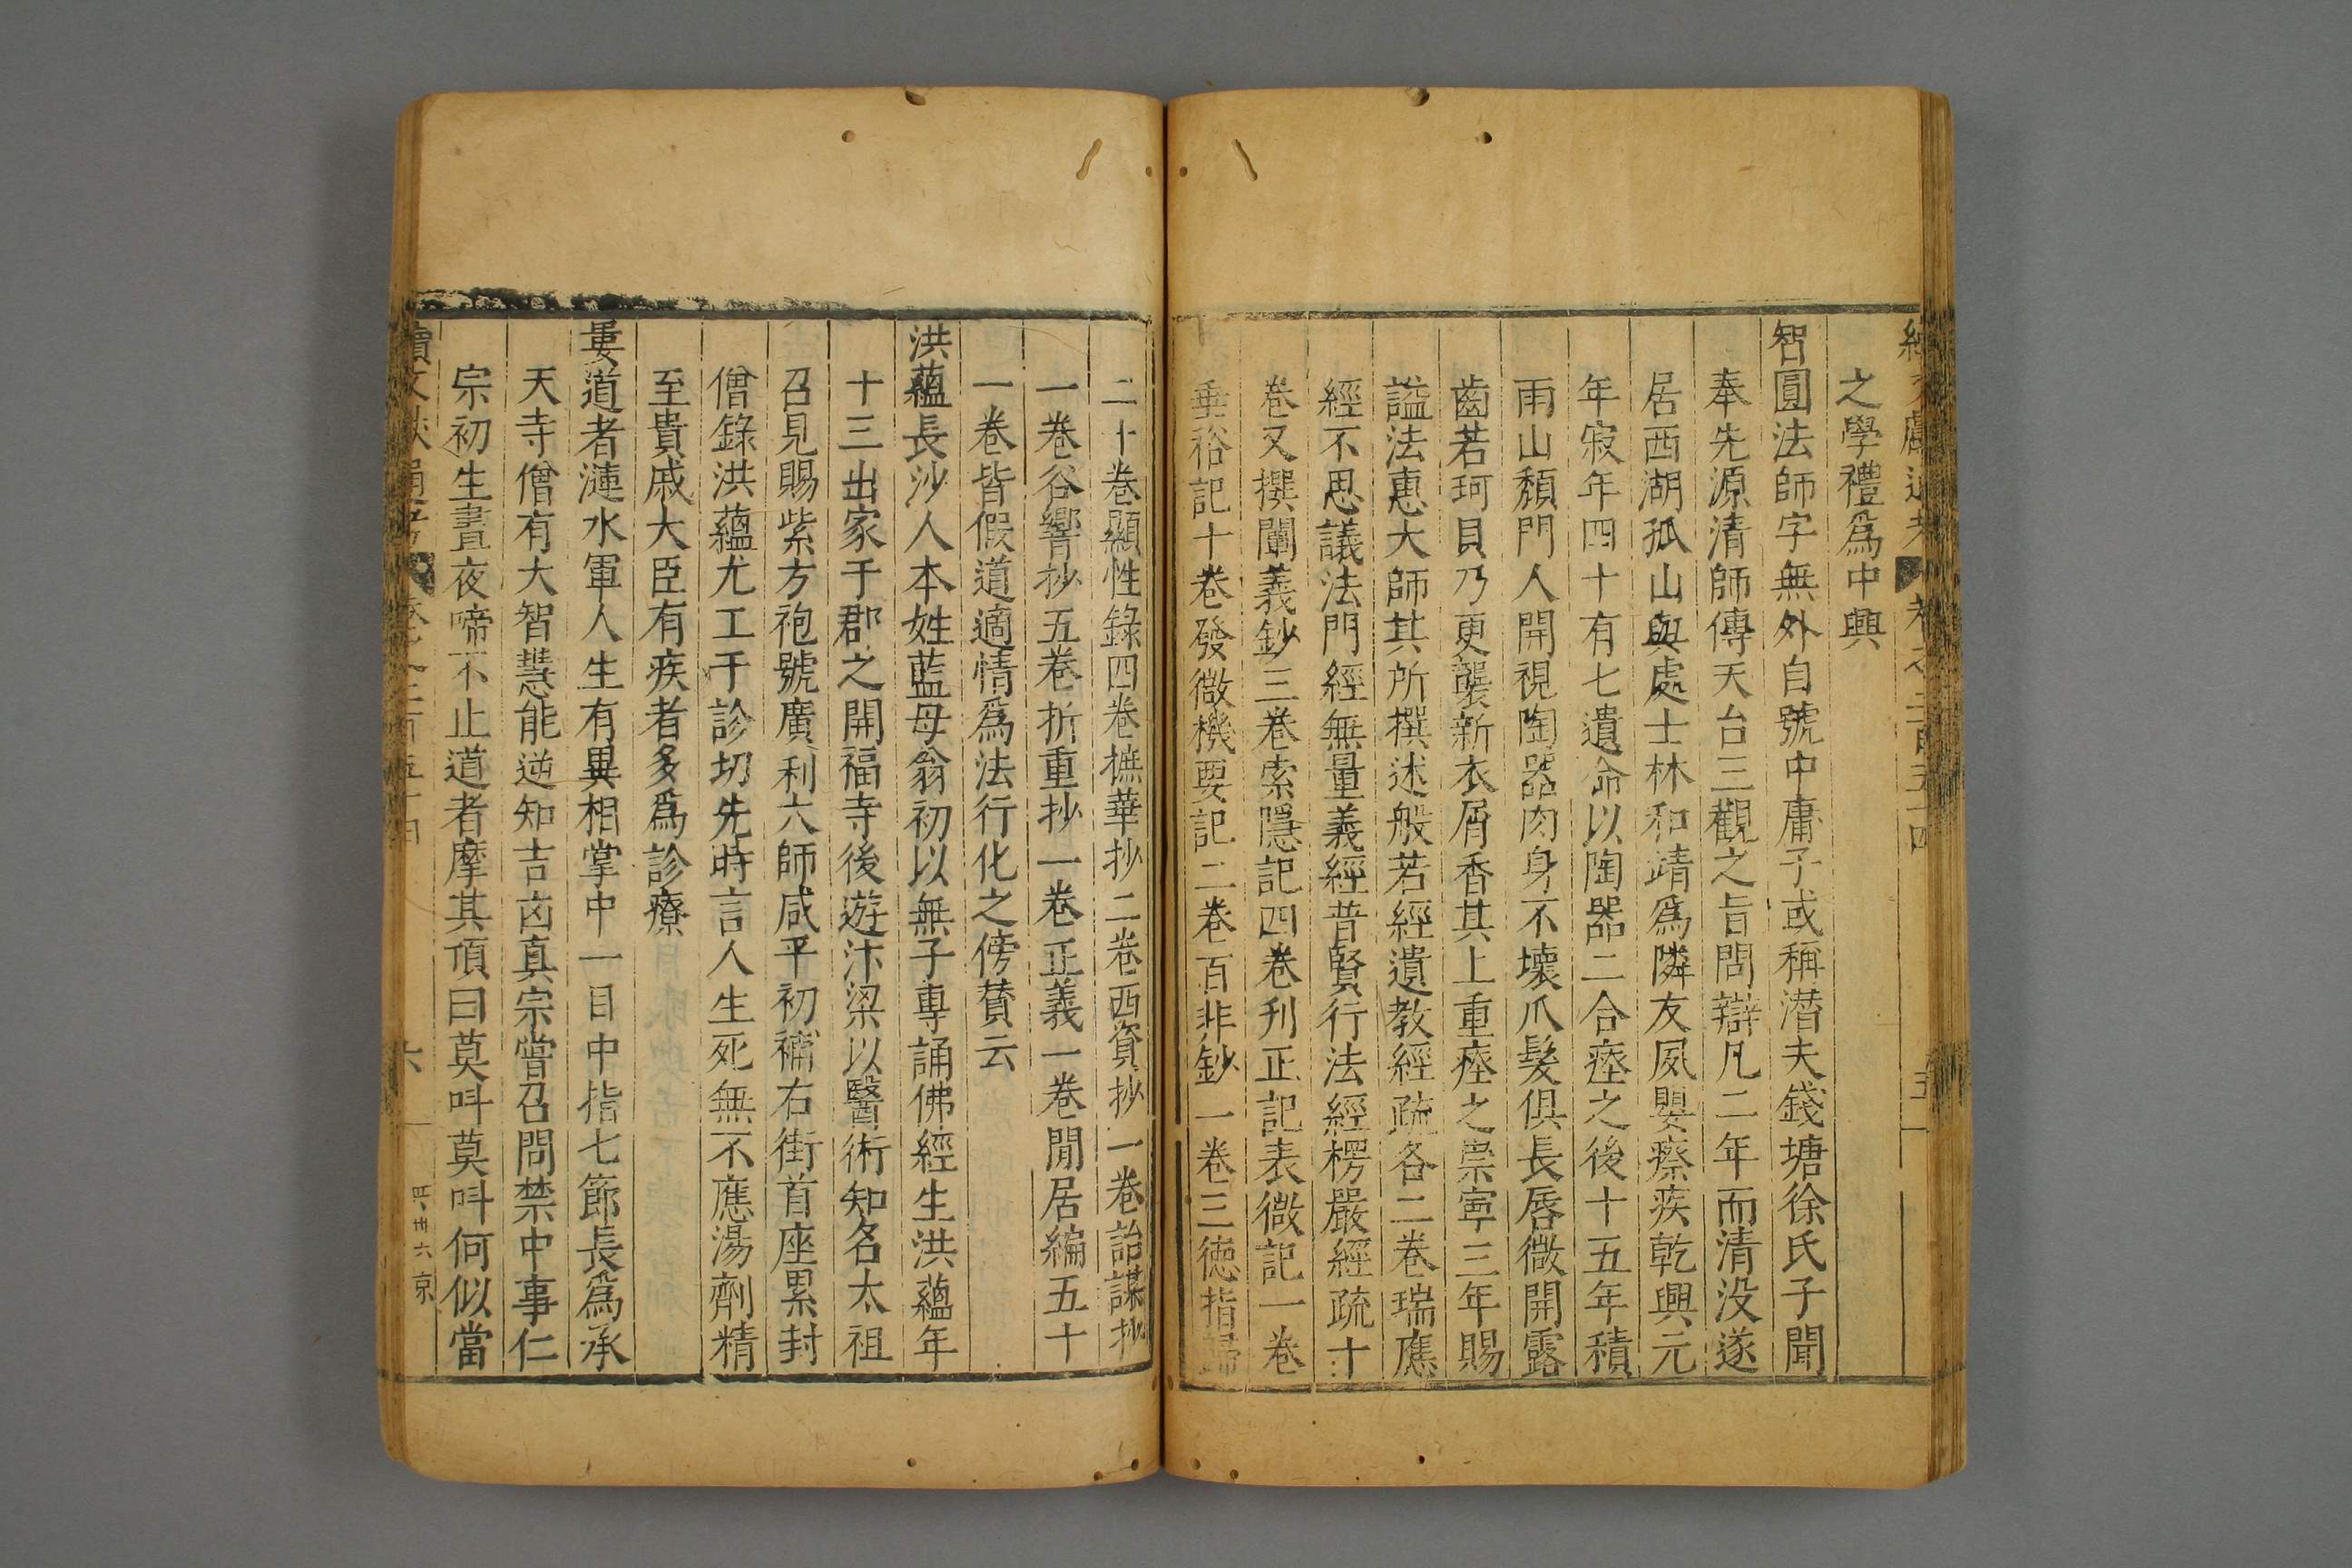 續文獻通考 卷之二百五十四 五
之學禮爲中興
智圓法師字無外自號中庸子或稱潜夫錢塘徐氏子聞
奉先源清師傳天台三觀之旨問辯凡二年而清没遂
居西湖孤山與處士林和靖爲隣友夙嬰瘵疾乾興元
年寂年四十有七遺命以陶器二合瘞之後十五年積
雨山頹門人開視陶器肉身不壞爪髮俱長唇微開露
齒若珂貝乃更襲新衣屑香其上重瘞之崇寧三年賜
謚法惠大師其所撰述般若經遺教經疏各二卷瑞應
經不思議法門經無量義經普賢行法經楞嚴經疏十
卷又撰闡義鈔三卷索隱記四卷刋正記表微記一卷
垂裕記十卷發微機要記二卷百非鈔一卷三德指歸
二十卷顯性錄四卷摭華抄二卷西資抄一卷詒謀抄
一卷谷響抄五卷折重抄一卷正義一卷閒居編五十
一卷皆假道適情爲法行化之傍賛云
洪蘊長沙人本姓藍母翁初以無子專誦佛經生洪蘊年
十三出家于郡之開福寺後遊汴梁以醫術知名太祖
召見賜紫方袍號廣利大師咸平初補右街首座累封
僧錄洪蘊尤工于診切先時言人生死無不應湯劑精
至貴戚大臣有疾者多爲診療
婁道者漣水軍人生有異相掌中一目中指七節長爲承
天寺僧有大智慧能逆知吉凶真宗嘗召問禁中事仁
宗初生晝夜啼不止道者摩其頂曰莫呌莫呌何似當
續文獻通考 卷之二百五十四 六